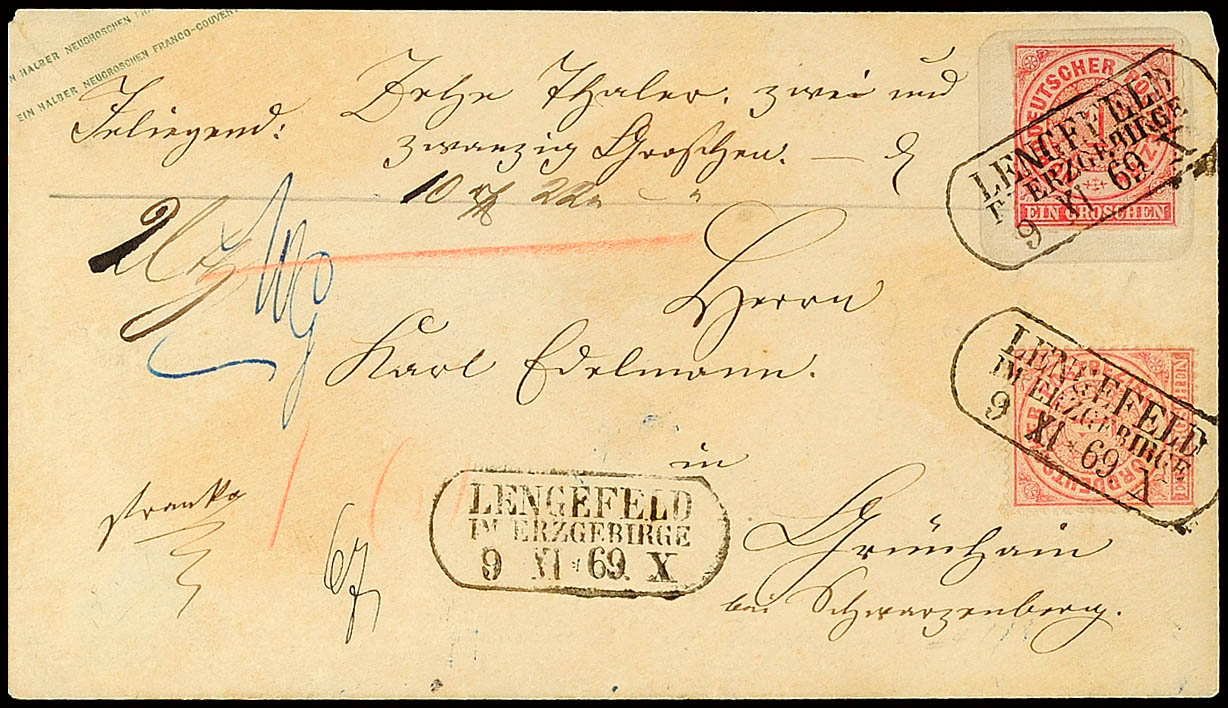 EIN HALBER NEUGROSCHEN FRA
EIN HALBER NEUGROSCHEN FRANCO-COUVERT
Inliegend: Zehn Thaler, zwei und
zwanzig Groschen. —
10 22
Herrn
Karl Edelmann.
in
Grünhain
bei Schwarzenberg.
franko
67
LENGEFELD
IM ERZGEBIRGE
9 XI 69. X
NORDDEUTSCHER POSTBEZIRK
1
EIN GROSCHEN
LENGEFELD
IM ERZGEBIRGE
9 XI 69. X
NORDDEUTSCHER POSTBEZIRK
EIN GROSCHEN
LENGEFELD
IM ERZGEBIRGE
9 XI 69. X